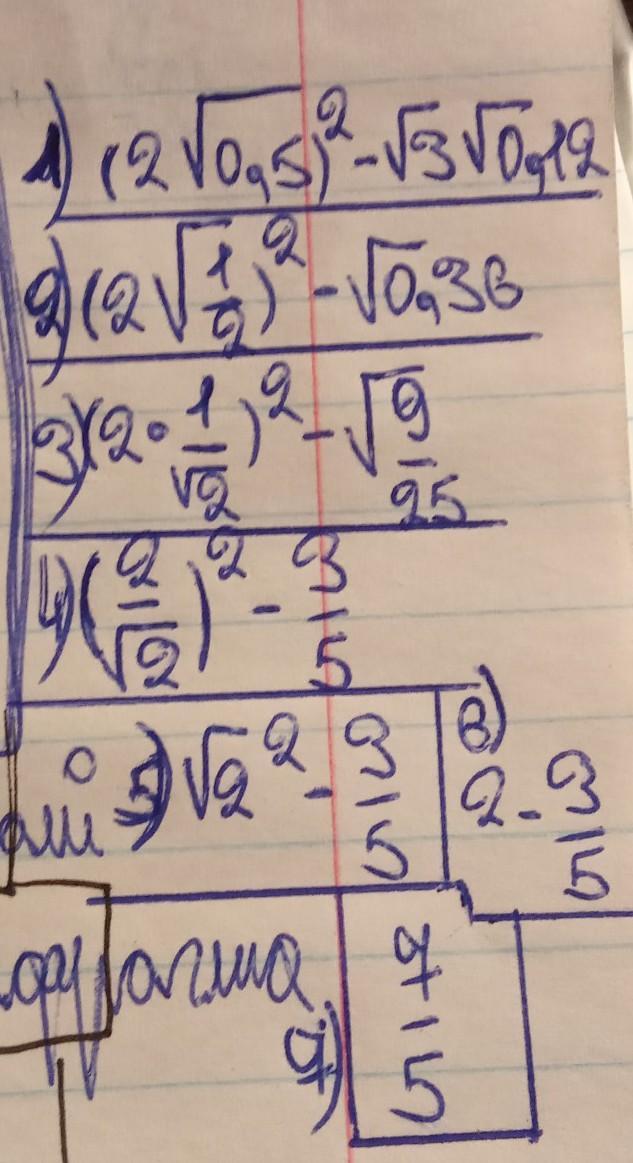 1) (2√0,5)² - √3√0,12
2) (2√1/2)² - √0,36
3) (2 · 1/√2)² - √9/25
4) (2/√2)² - 3/5
5) √2² - 3/5
6) 2 - 3/5
7) 7/5